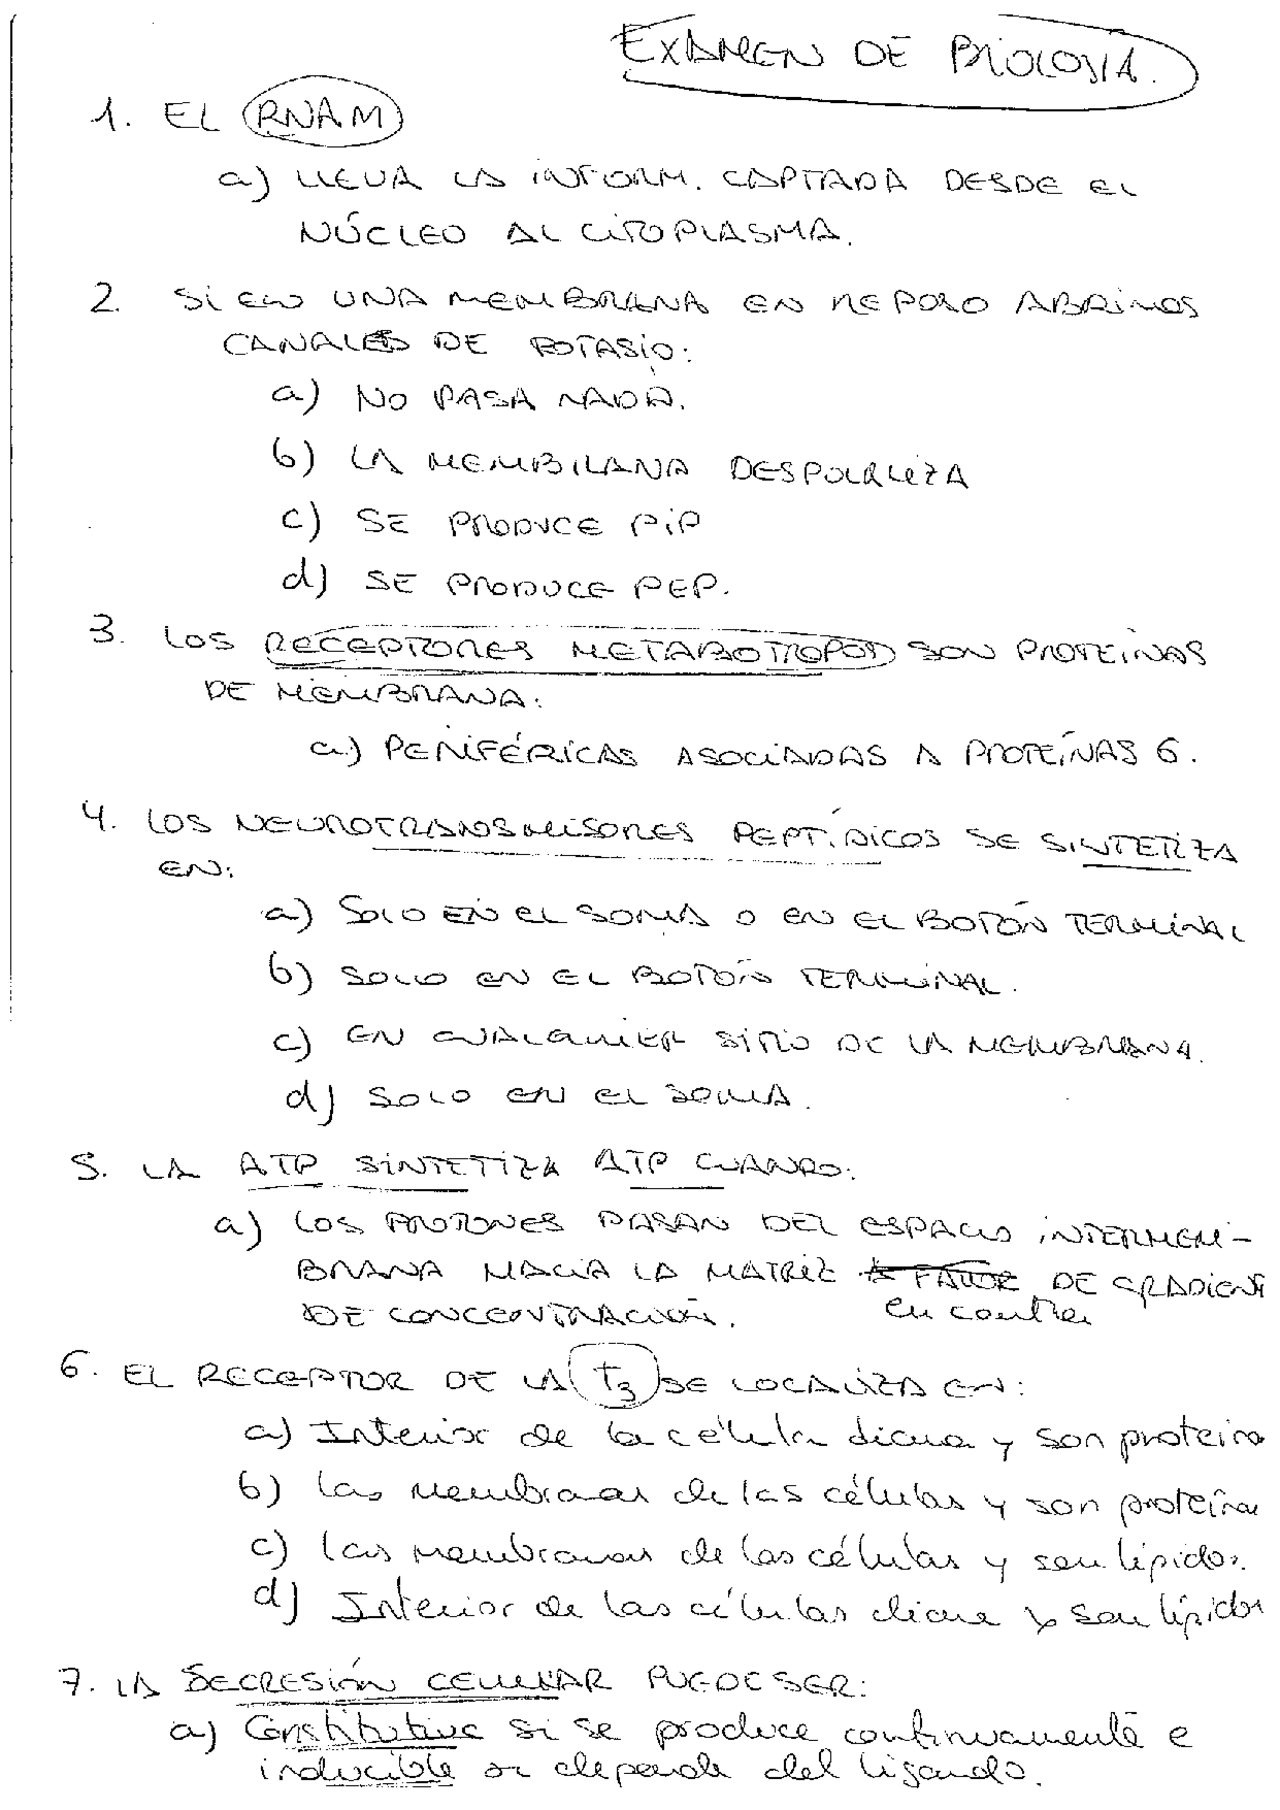 EXAMEN DE BIOLOGÍA.
1. EL RNAM
a) LLEVA LA INFORM. CAPTADA DESDE EL
NÚCLEO AL CITOPLASMA.
2. SI EN UNA MEMBRANA EN REPOSO ABRIMOS
CANALES DE POTASIO:
a) NO PASA NADA.
b) LA MEMBRANA DESPOLARIZA
c) SE PRODUCE PIP
d) SE PRODUCE PEP.
3. LOS RECEPTORES METABOTROPOS SON PROTEINAS
DE MEMBRANA:
a) PERIFÉRICAS ASOCIADAS A PROTEÍNAS G.
4. LOS NEUROTRANSMISORES PEPTÍDICOS SE SINTETIZA
EN:
a) SOLO EN EL SOMA O EN EL BOTÓN TERMINAL
b) SOLO EN EL BOTÓN TERMINAL.
c) EN CUALQUIER SITIO DE LA MEMBRANA.
d) SOLO EN EL SOMA.
5. LA ATP SINTETIZA ATP CUANDO:
a) LOS PROTONES PASAN DEL ESPACIO INTERMEM-
BRANA HACIA LA MATRIZ A FAVOR DE GRADIENT
DE CONCENTRACIÓN. en contra
6. EL RECEPTOR DE LA T3 SE LOCALIZA EN:
a) Interior de la célula diana y son proteina
b) las membranas de las células y son proteína
c) las membranas de las células y son lípidos.
d) Interior de las células diana y son lípidos
7. LA SECRESIÓN CELULAR PUEDE SER:
a) Constitutiva si se produce continuamente e
inducible si depende del ligando.